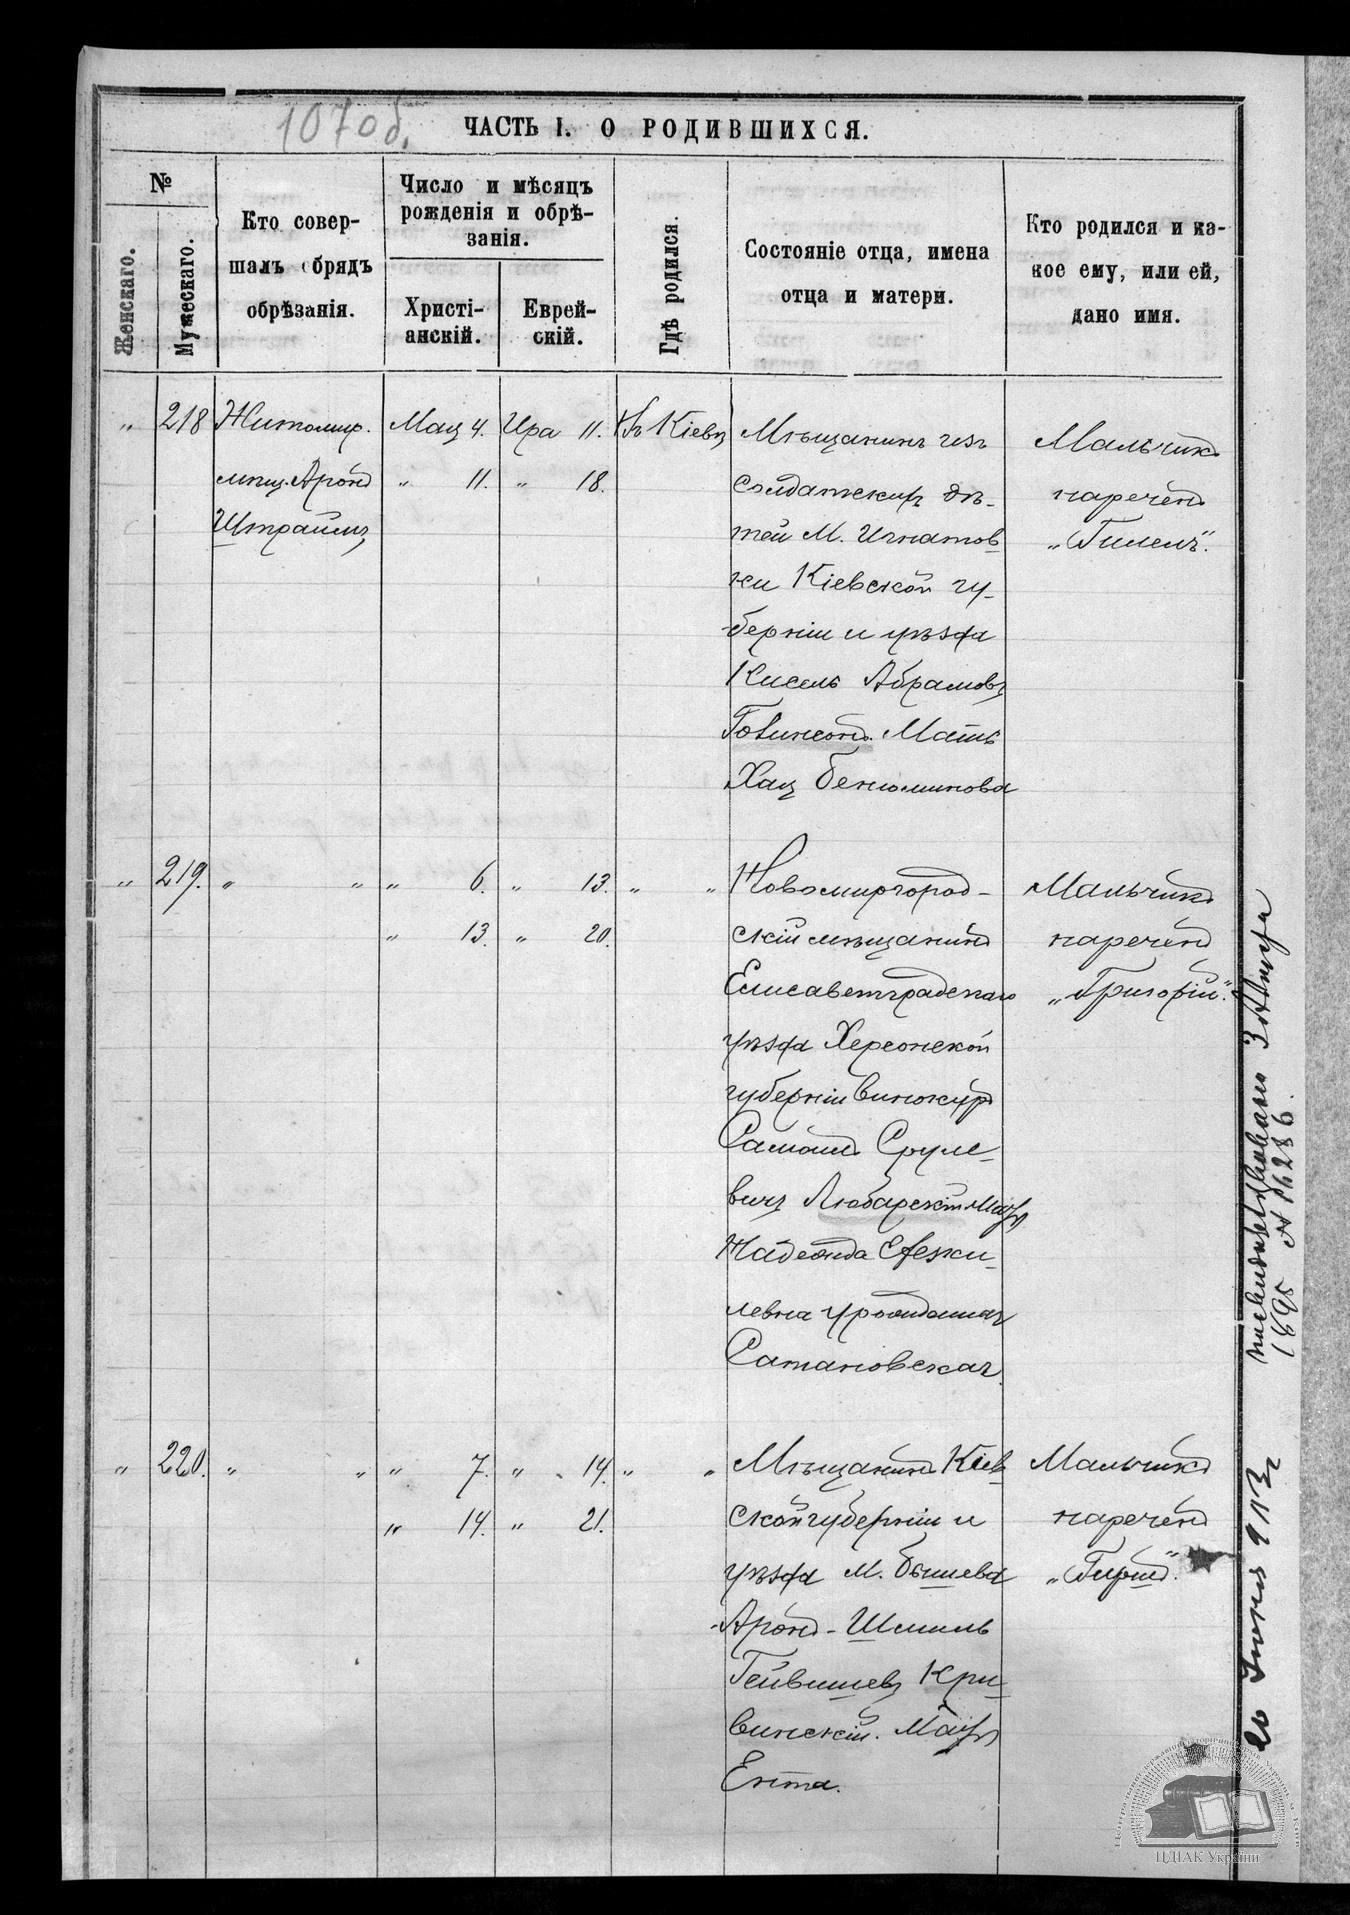 107 об.
ЧАСТЬ I. О РОДИВШИХСЯ.
№
Женскаго.
Мужескаго.
Кто совер-
шалъ обрядъ
обрѣзанія.
Число и мѣсяцъ
рожденія и обрѣ-
занія.
Христі-
анскій.
Еврей-
скій.
Гдѣ родился.
Состояніе отца, имена
отца и матери.
Кто родился и ка-
кое ему, или ей,
дано имя.
„ 218 Житомир. Мая 4. Ира 11. Въ Кіевѣ
мѣщ. Аронъ „ 11. „ 18.
Штраймъ
Мѣщанинъ изъ
солдатскихъ дѣ-
тей М. Игнатов
ки Кіевской гу-
берніи и уѣзда
Кисель Абрамовъ
Мать
Хая Бенюминова
Мальчикъ
нареченъ
„Гилель“.
„ 219. „ „ „ 6. „ 13. „ „
„ 13. „ 20.
Новомиргород-
скій мѣщанинъ
Елисаветградскаго
уѣзда Херсонской
губерніи Винокуръ
Самоилъ Сруле-
вичъ Любарскій Мать
Надежда Езеки-
левна урожденная
Сатановская.
Мальчикъ
нареченъ
„Григорій“.
„ 220. „ „ „ 7. „ 14. „ „
„ 14. „ 21.
Мѣщанинъ Кіев
ской губерніи и
уѣзда М. Бышева
Аронъ-Шмиль
Гейвишевъ Кри-
винскій. Мать
Ента.
Мальчикъ
нареченъ
„Гиршъ“.
1895 № 16286.
ЦДІАК України